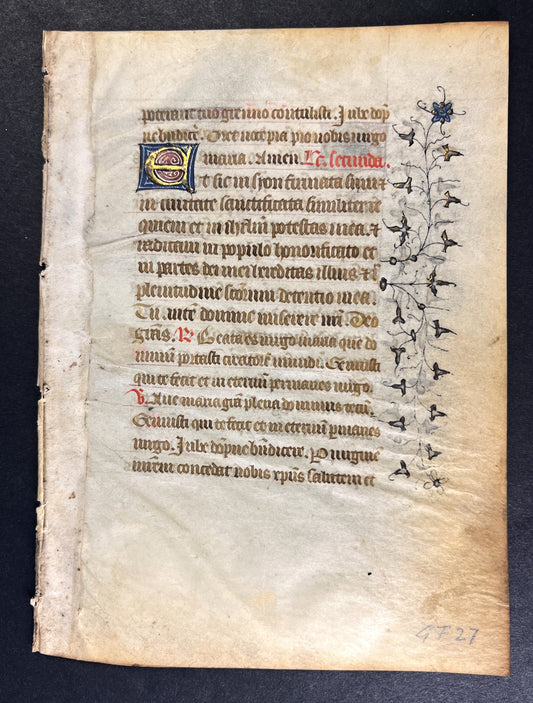 potenant tuo gremio contulisti. Jube dopn
ne bndicē. Ore nocte pia pro nobis virgo
maria. Amen. Lc. secunda.
Et sic in syon firmata sum et
in civitate sanctificata similiter re
quievi et in ihrlm potestas mea. et
radicavi in populo honorificato et
in partes dei mei hereditas illius. et ī
plenitudine scōrum detentio mea.
Tu. autē domine miserere nrī. Deo
grās. R Beata es virgo maria que do
minum portasti creatorē mundi. Genuisti
qui te fecit et in eternū permanes virgo.
V. Ave maria grā plena dominus tecū.
Genuisti qui te fecit et in eternū pmanes
virgo. Jube dopne bndicere. P virginē
mrem concedat nobis xpūs salutem et
G F 27